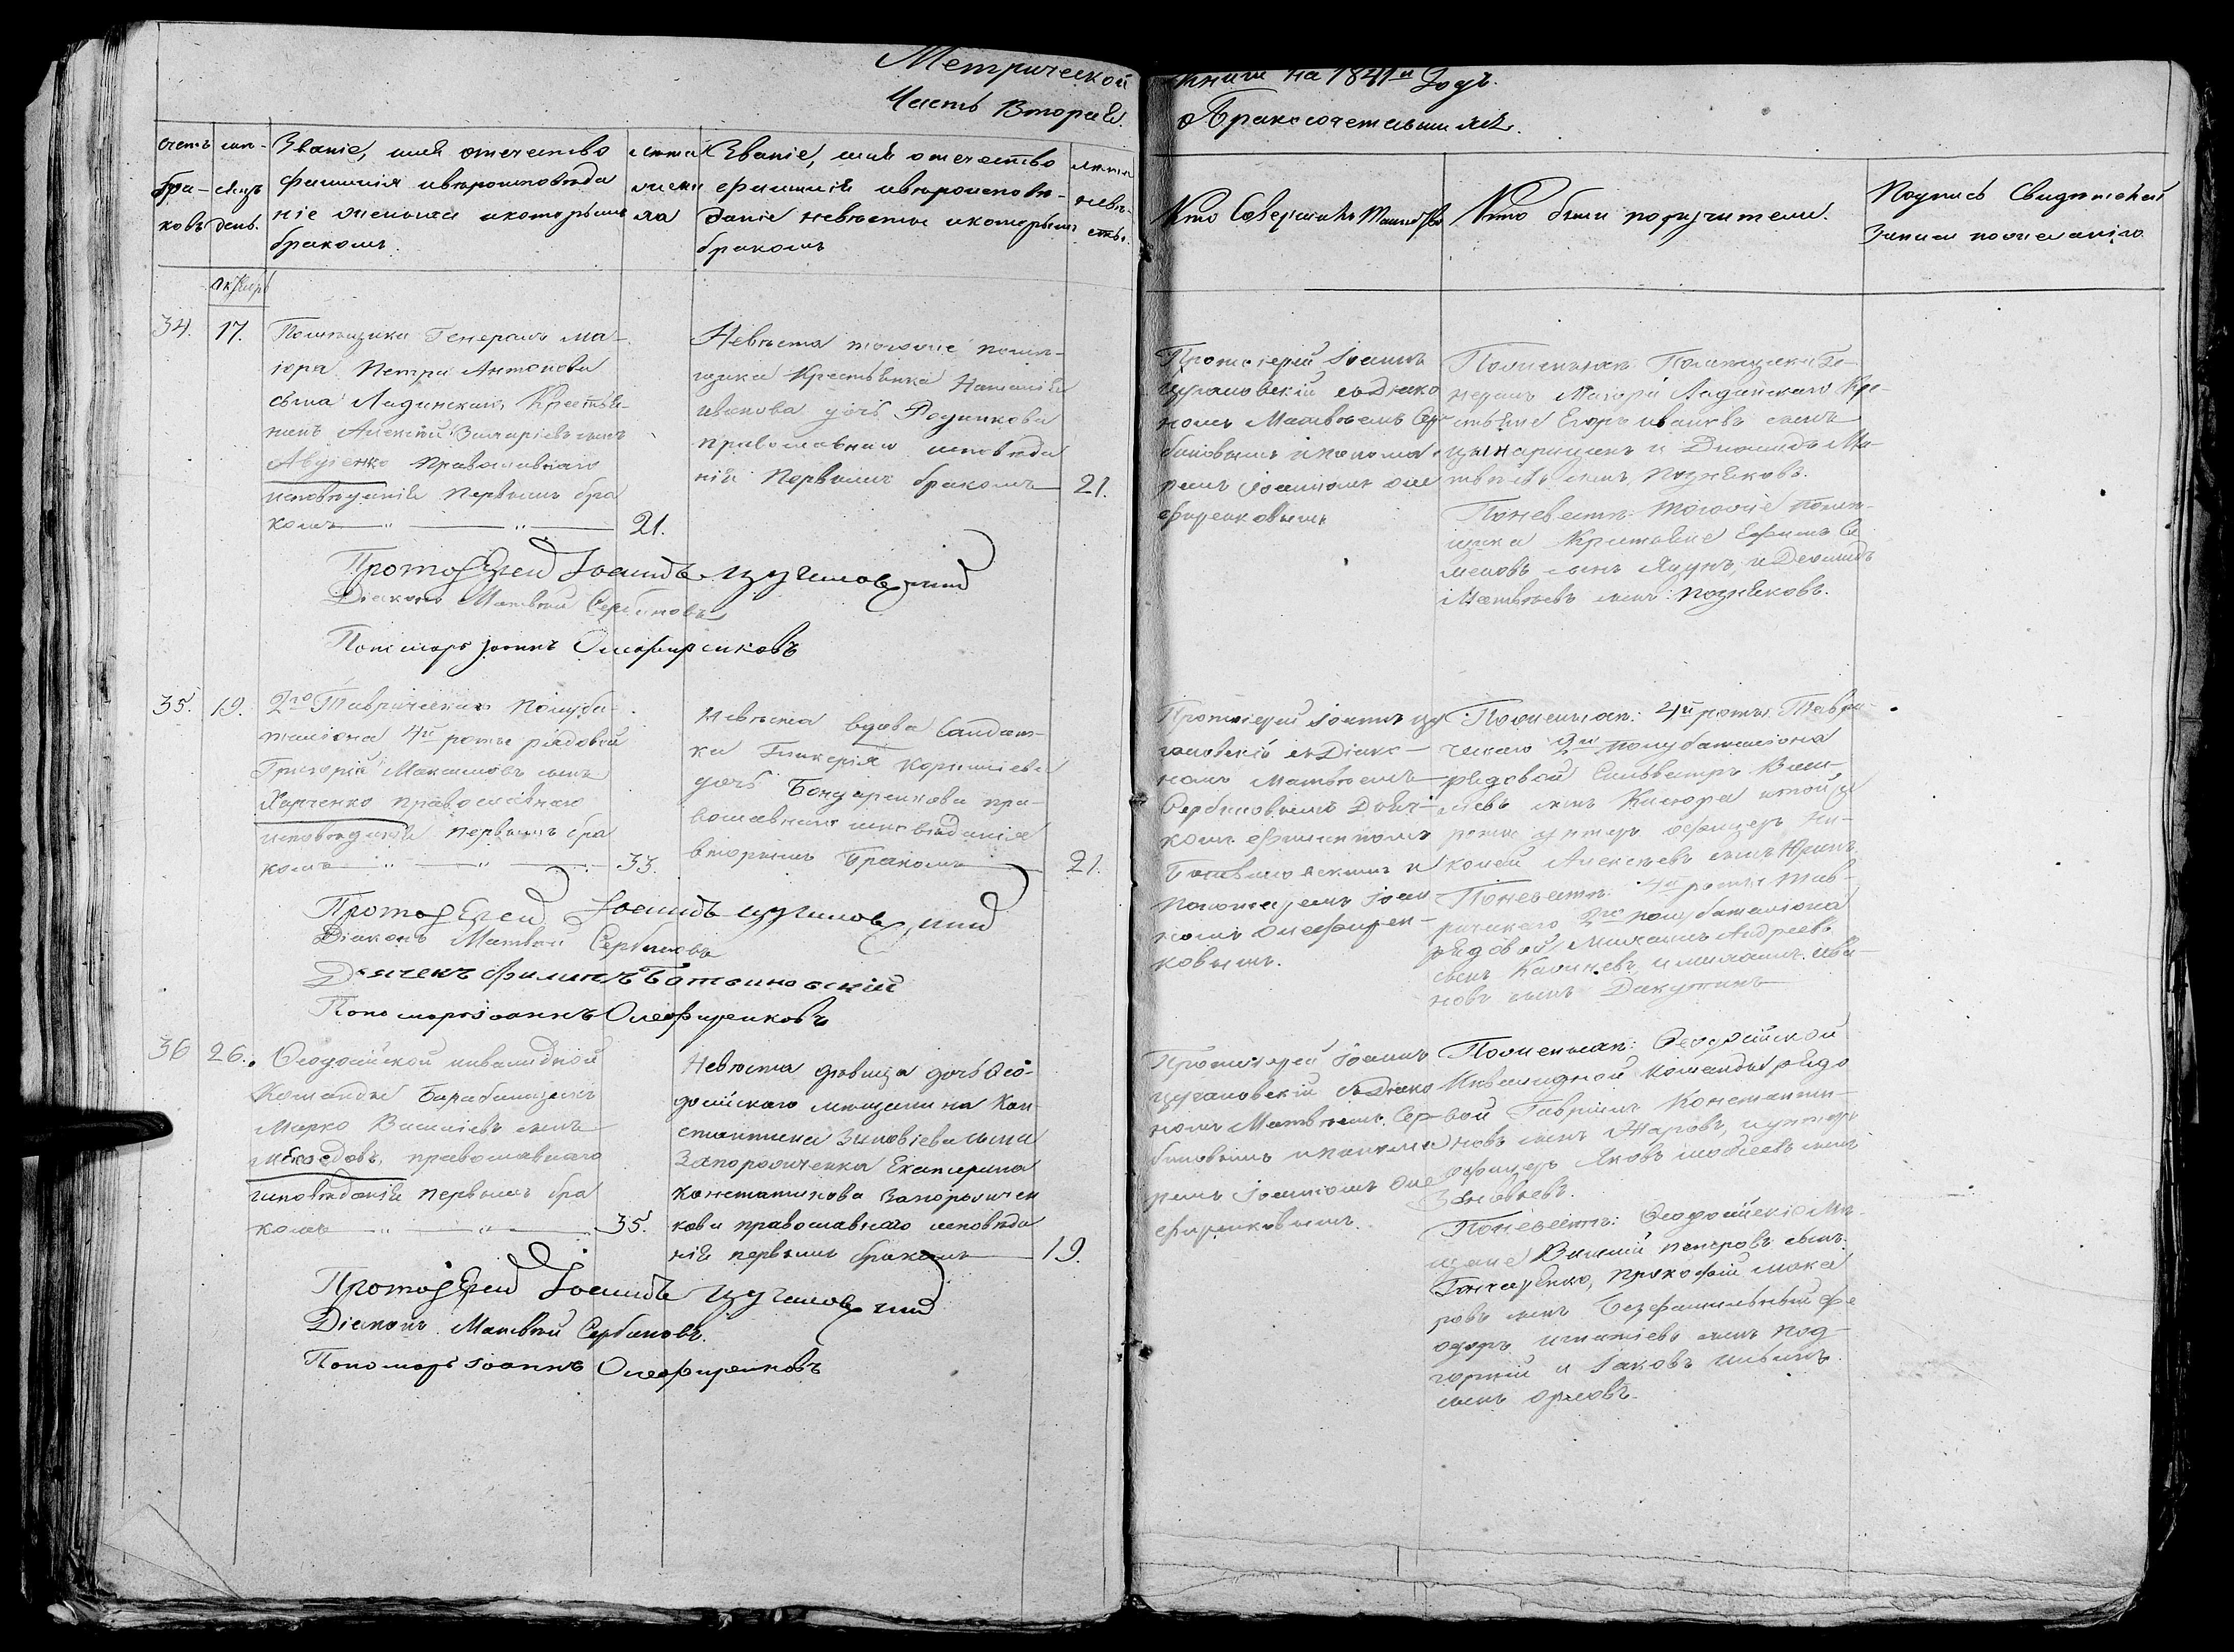 Метрической
Часть Вторая.
книги на 1841й Годъ.
о Бракосочетавшихся.
счетъ бра-ковъ
мѣ-сяцъ день.
Званіе, имя отечество
фамилія ивѣроисповѣда
ніе жениха икоторымъ
бракомъ.
лѣта жени ха
Званіе, имя отечество
фамилія ивѣроисповѣ-
даніе невѣсты икоторымъ
бракомъ
лѣта невѣ-сты.
Кто Совершалъ Таинство
Кто были поручители.
Подпись Свидѣтелей
Записи пожеланію
октябрь
34.
17.
Помѣщика Генералъ ма-
іора Петра Антонова
сына Ладинскаго Крестья-
нинъ Алексѣй Захаріевъ сынъ
Авдіенко Православнаго
исповѣданія первымъ бра
комъ
21.
Невѣста тогоже помѣ-
щика Крестьянка Наталія
иванова дочь
православнаго исповѣда
нія Первымъ бракомъ
21.
Протоіерей Іоаннъ
Цугановскій съДіако
номъ Матвѣемъ Сер-
биновымъ ипонома
ремъ Іоанномъ Оле
фиренковымъ
Поженихѣ: Помѣщика Ге-
нералъ Маіора Ладинскаго Кре-
стьяне Егоръ ивановъ сынъ
и Діомидъ Ма-
твѣевъ сынъ Поздняковъ.
Поневѣстѣ: тогоже помѣ-
щика Крестьяне Ефимъ Се
меновъ сынъ и Деомидъ
Матвѣевъ сынъ Поздняковъ.
Протоіерей Іоаннъ Цугановскій
Діаконъ Матвѣй Сербиновъ
Пономарь Іоаннъ Олефиренковъ
35.
19.
2го Таврическаго Полуба-
таліона 4й роты рядовой
Григорій Максимовъ сынъ
Харченко православнаго
исповѣданія первымъ бра
комъ
33.
Невѣста вдова Салдат-
ка Гликерія Корниліева
дочь Бондаренкова пра-
вославнаго исповѣданія
вторымъ Бракомъ
21.
Протоіерей Іоаннъ Цу
гановскій съДіако-
номъ Матвѣемъ
Сербиновымъ Дьяч-
комъ Филиппомъ
Ботвиновскимъ и
Пономаремъ Іоан
номъ Олефирен-
ковымъ.
Поженихѣ: 4й роты Таври-
ческаго 2го Полубаталіона
рядовой Сильвестръ Васи-
ліевъ сынъ итойже
роты унтеръ офицеръ Ни-
колай Алексѣевъ сынъ
Поневѣстѣ: 4й роты Тав-
рическаго 2го полубаталіона
рядовой Михаилъ Андреевъ
сынъ и михаилъ ива
новъ сынъ
Протоіерей Іоаннъ Цугановскій
Діаконъ Матвѣй Сербиновъ
Дьячекъ Филипъ Ботвиновскій
Пономарь Іоаннъ Олефиренковъ
36
26.
Ѳеодосійской инвалидной
Команды Барабанщикъ
Марко Василіевъ сынъ
Мясоедовъ, православнаго
исповѣданія первымъ бра
комъ
35.
Невѣста дѣвица дочь Ѳео-
досійскаго мѣщанина Кон-
стантина Зиновіева сына
Запорожченка Екатерина
Константинова Запорожчен
кова православнаго исповѣда
нія первымъ бракомъ
19.
Протоіерей Іоаннъ
Цугановскій съДіако
номъ Матвѣемъ Сер-
биновымъ ипонома
ремъ Іоанномъ Оле
фиренковымъ.
Поженихѣ: Ѳеодосійской
Инвалидной Команды рядо
вой Гавріилъ Константи-
новъ сынъ Жаровъ, иунтеръ
офицеръ Яковъ сынъ
Зиновьевъ.
Поневѣстѣ: Ѳеодосійскіе Мѣ-
щане Василій петровъ сынъ
Гончаренко, прокофій мака
ровъ сынъ Безфамильный Фе
одоръ игнатіевъ сынъ под-
горній и Іаковъ ильинъ
сынъ орловъ.
Протоіерей Іоаннъ Цугановскій
Діаконъ Матвѣй Сербиновъ.
Пономарь Іоаннъ Олефиренковъ